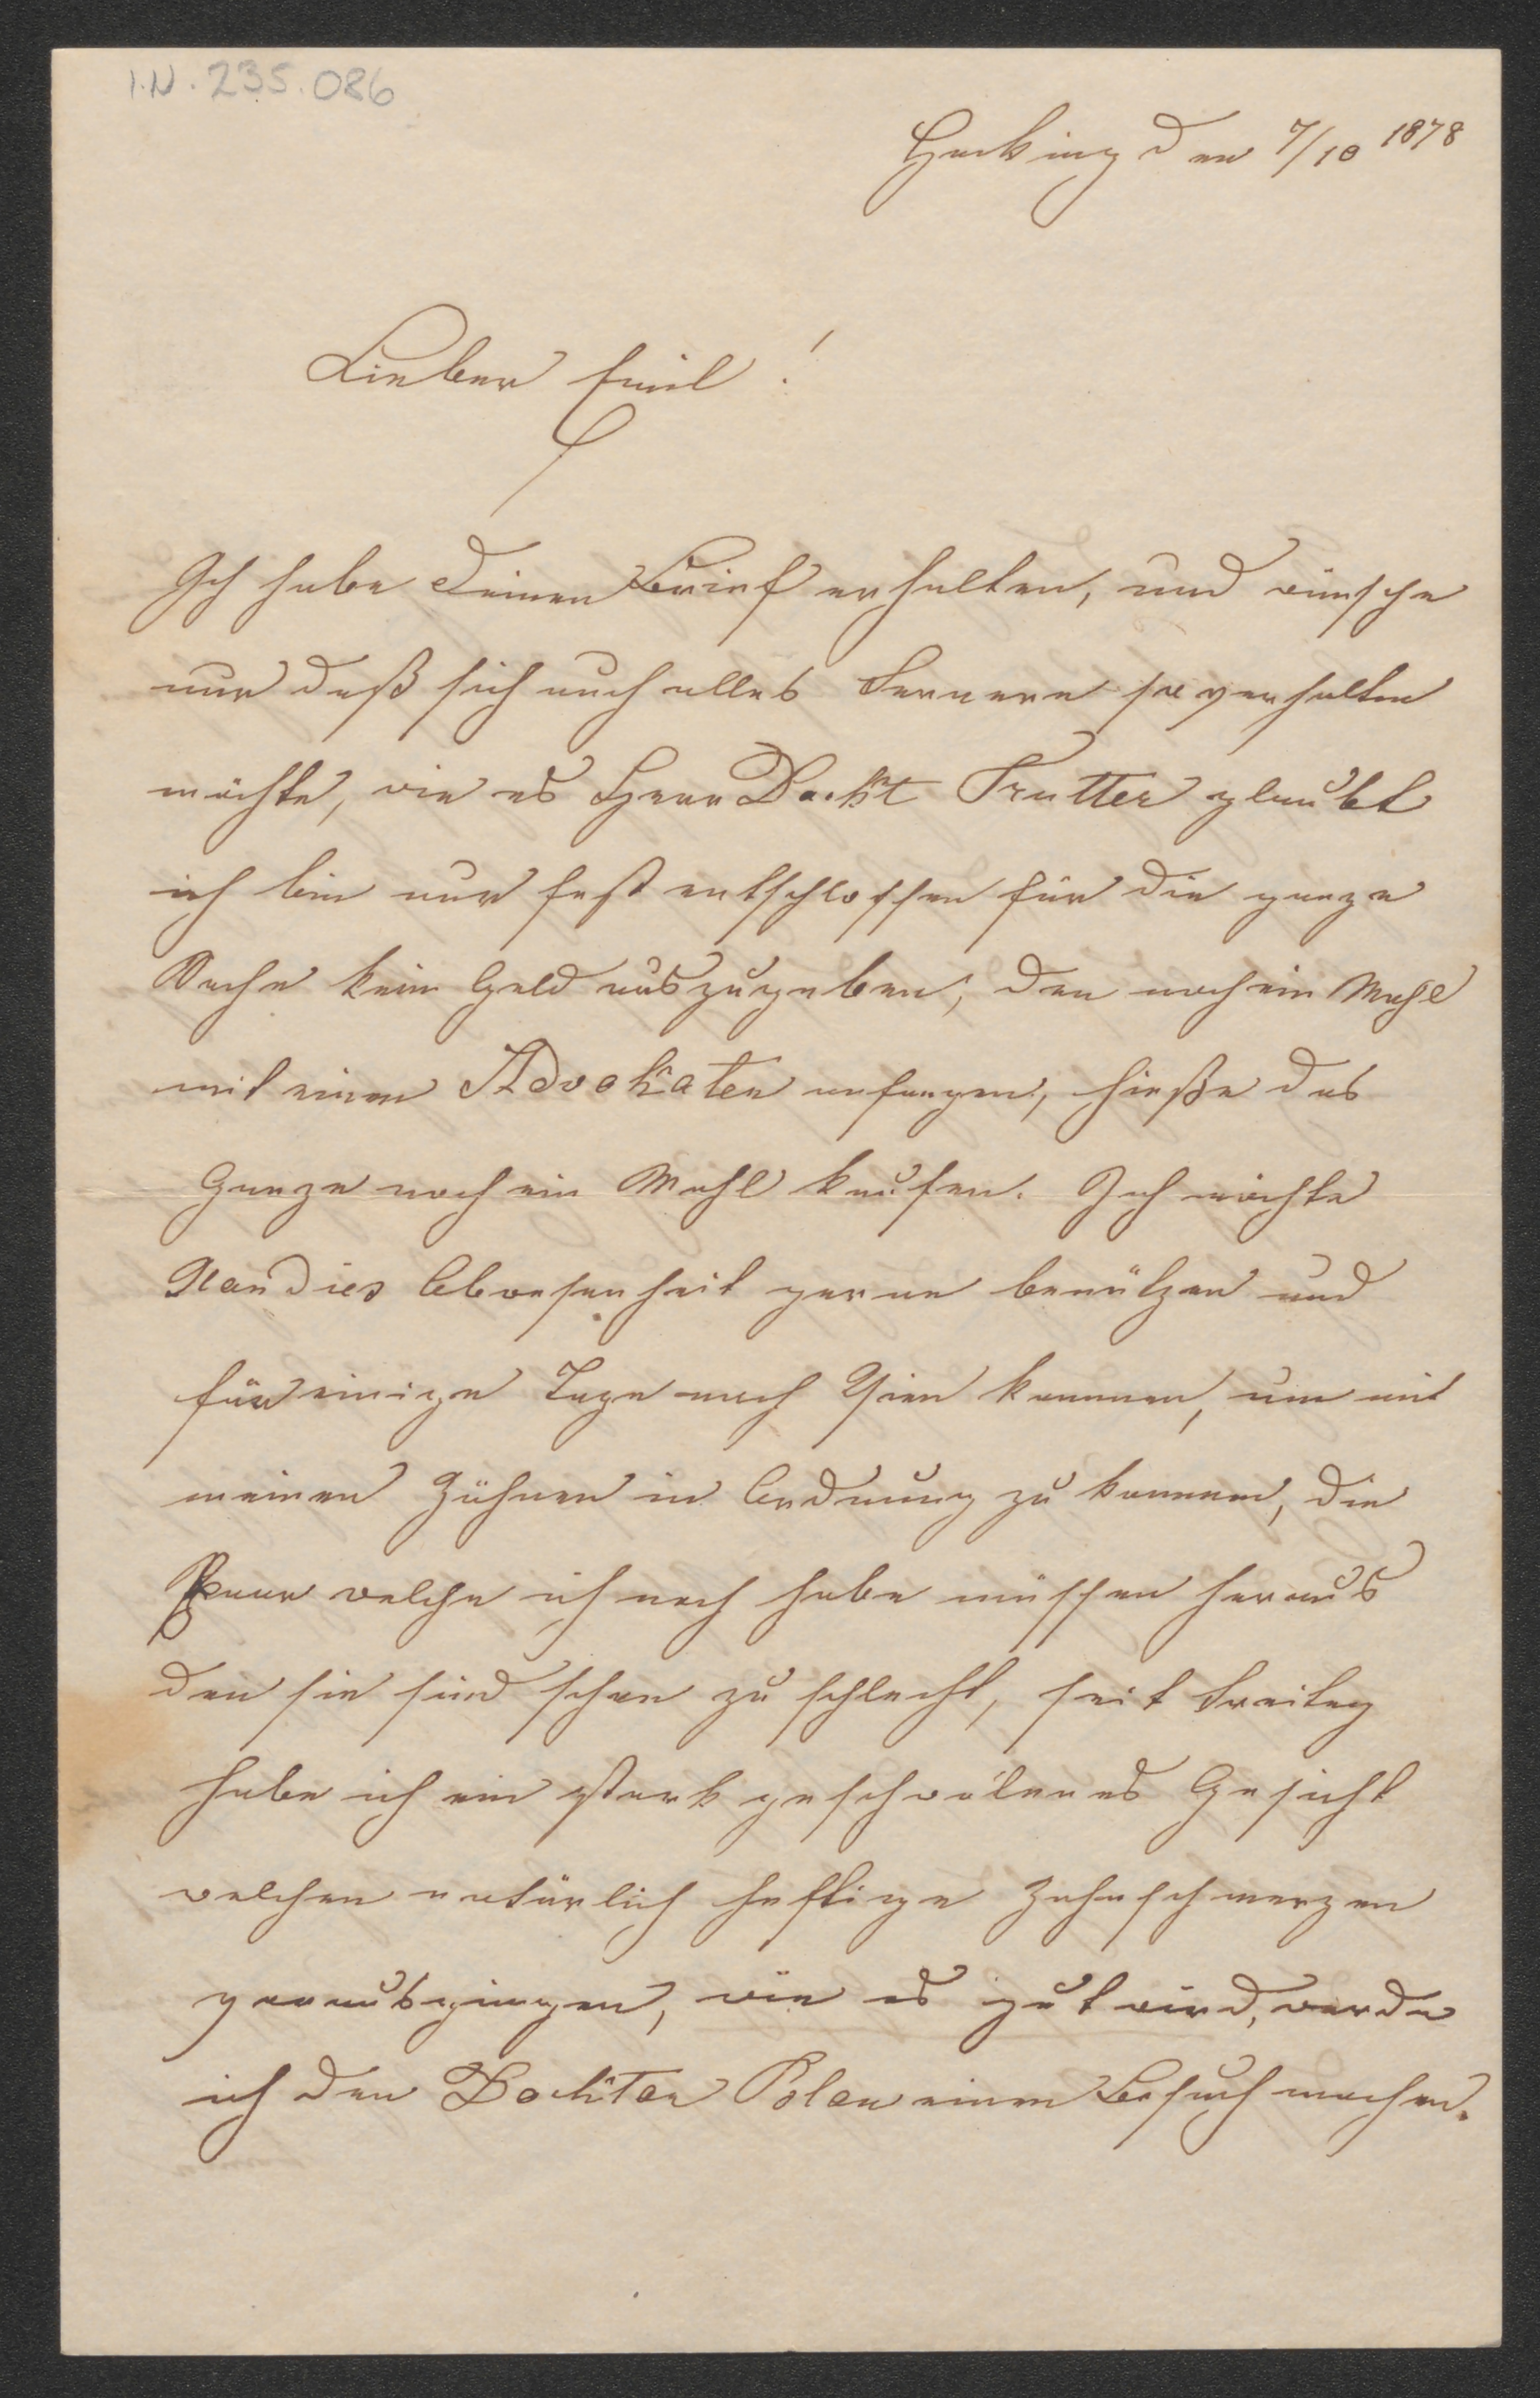 I.N. 235.086
Hacking den 7/10 1878
Lieber Emil!
Ich habe Deinen Brief erhalten, und wünsche
nur daß sich auch alles Fernere so verhalten
möchte, wie es Herr Dockt Trutter glaubt
ich bin nur fest entschlossen für die ganze
Sache kein Geld auszugeben, den noch ein Mahl
mit einen Advokaten anfangen, hieße das
Ganze noch ein Mahl kaufen. Ich möchte
Nandies Abwesenheit gerne benützen und
für einige Tage nach Wien kommen, um mit
meinen Zähnen in Ordnung zu kommen, die
Paar welche ich noch habe müssen heraus
den sie sind schon zu schlecht, seit Freitag
habe ich ein stark geschwolenes Gesicht
welchen natürlich heftige Zahnschmerzen
vorausgingen, wie es gut wird, werde
ich den Docktor Bolan einen Besuch machen.